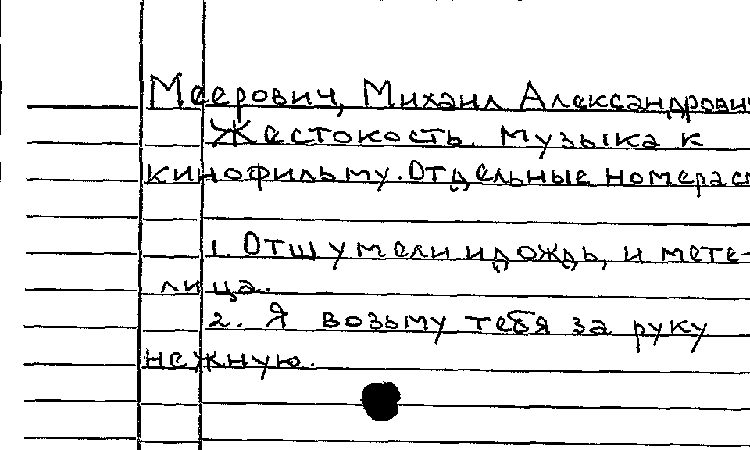 Меерович, Михаил Александрович
Жестокость. Музыка к
кинофильму. Отдельные номера
1. Отшумели и дождь, и мете-
лица.
2. Я возьму тебя за руку
нежную.